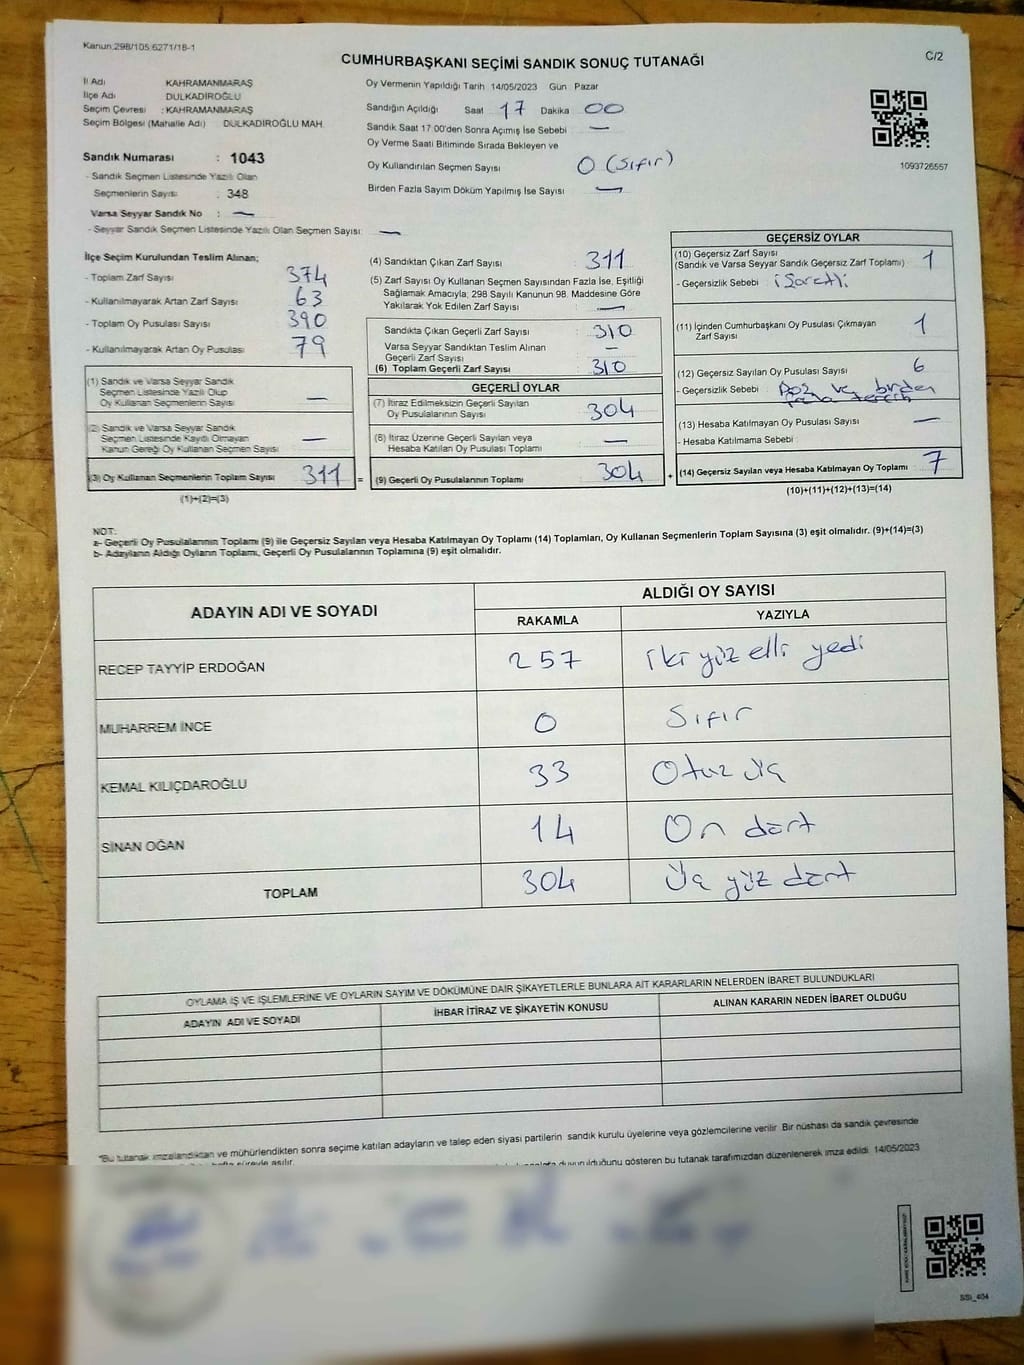 Kanun:298/105,6271/18-1
CUMHURBAŞKANI SEÇİMİ SANDIK SONUÇ TUTANAĞI
C/2
İl Adı KAHRAMANMARAŞ
İlçe Adı DULKADİROĞLU
Seçim Çevresi : KAHRAMANMARAŞ
Seçim Bölgesi (Mahalle Adı) DULKADİROĞLU MAH.
Oy Vermenin Yapıldığı Tarih 14/05/2023 Gün Pazar
Sandığın Açıldığı Saat 17 Dakika 00
Sandık Saat 17:00'den Sonra Açımış İse Sebebi —
Oy Verme Saati Bitiminde Sırada Bekleyen ve
Oy Kullandırılan Seçmen Sayısı 0 (Sıfır)
Birden Fazla Sayım Döküm Yapılmış İse Sayısı —
1093726557
Sandık Numarası : 1043
- Sandık Seçmen Listesinde Yazılı Olan
Seçmenlerin Sayısı : 348
Varsa Seyyar Sandık No : —
- Seyyar Sandık Seçmen Listesinde Yazılı Olan Seçmen Sayısı: —
İlçe Seçim Kurulundan Teslim Alınan;
- Toplam Zarf Sayısı 374
- Kullanılmayarak Artan Zarf Sayısı 63
- Toplam Oy Pusulası Sayısı 390
- Kullanılmayarak Artan Oy Pusulası 79
(1) Sandık ve Varsa Seyyar Sandık
Seçmen Listesinde Yazılı Olup
Oy Kullanan Seçmenlerin Sayısı —
(2) Sandık ve Varsa Seyyar Sandık
Seçmen Listesinde Kayıtlı Olmayan
Kanun Gereği Oy Kullanan Seçmen Sayısı —
(3) Oy Kullanan Seçmenlerin Toplam Sayısı 311 =
(1)+(2)=(3)
(4) Sandıktan Çıkan Zarf Sayısı : 311
(5) Zarf Sayısı Oy Kullanan Seçmen Sayısından Fazla İse, Eşitliği
Sağlamak Amacıyla, 298 Sayılı Kanunun 98. Maddesine Göre
Yakılarak Yok Edilen Zarf Sayısı : —
Sandıkta Çıkan Geçerli Zarf Sayısı : 310
Varsa Seyyar Sandıktan Teslim Alınan
Geçerli Zarf Sayısı : —
(6) Toplam Geçerli Zarf Sayısı : 310
GEÇERLİ OYLAR
(7) İtiraz Edilmeksizin Geçerli Sayılan
Oy Pusulalarının Sayısı : 304
(8) İtiraz Üzerine Geçerli Sayılan veya
Hesaba Katılan Oy Pusulası Toplamı : —
(9) Geçerli Oy Pusulalarının Toplamı : 304 +
GEÇERSİZ OYLAR
(10) Geçersiz Zarf Sayısı
(Sandık ve Varsa Seyyar Sandık Geçersiz Zarf Toplamı) : 1
- Geçersizlik Sebebi : işaretli
(11) İçinden Cumhurbaşkanı Oy Pusulası Çıkmayan
Zarf Sayısı 1
(12) Geçersiz Sayılan Oy Pusulası Sayısı 6
- Geçersizlik Sebebi : Boş ve birden
fazla tercih
(13) Hesaba Katılmayan Oy Pusulası Sayısı —
- Hesaba Katılmama Sebebi
(14) Geçersiz Sayılan veya Hesaba Katılmayan Oy Toplamı : 7
(10)+(11)+(12)+(13)=(14)
NOT:
a- Geçerli Oy Pusulalarının Toplamı (9) ile Geçersiz Sayılan veya Hesaba Katılmayan Oy Toplamı (14) Toplamları, Oy Kullanan Seçmenlerin Toplam Sayısına (3) eşit olmalıdır. (9)+(14)=(3)
b- Adayların Aldığı Oyların Toplamı, Geçerli Oy Pusulalarının Toplamına (9) eşit olmalıdır.
ADAYIN ADI VE SOYADI ALDIĞI OY SAYISI
RAKAMLA YAZIYLA
RECEP TAYYİP ERDOĞAN 257 iki yüz elli yedi
MUHARREM İNCE 0 Sıfır
KEMAL KILIÇDAROĞLU 33 Otuz üç
SİNAN OĞAN 14 On dört
TOPLAM 304 Üç yüz dört
OYLAMA İŞ VE İŞLEMLERİNE VE OYLARIN SAYIM VE DÖKÜMÜNE DAİR ŞİKAYETLERLE BUNLARA AİT KARARLARIN NELERDEN İBARET BULUNDUKLARI
ADAYIN ADI VE SOYADI İHBAR İTİRAZ VE ŞİKAYETİN KONUSU ALINAN KARARIN NEDEN İBARET OLDUĞU
*Bu tutanak imzalandıktan ve mühürlendikten sonra seçime katılan adayların ve talep eden siyasi partilerin sandık kurulu üyelerine veya gözlemcilerine verilir. Bir nüshası da sandık çevresinde
hafta süreyle asılır. duyurulduğunu gösteren bu tutanak tarafımızdan düzenlenerek imza edildi. 14/05/2023
SSI_404